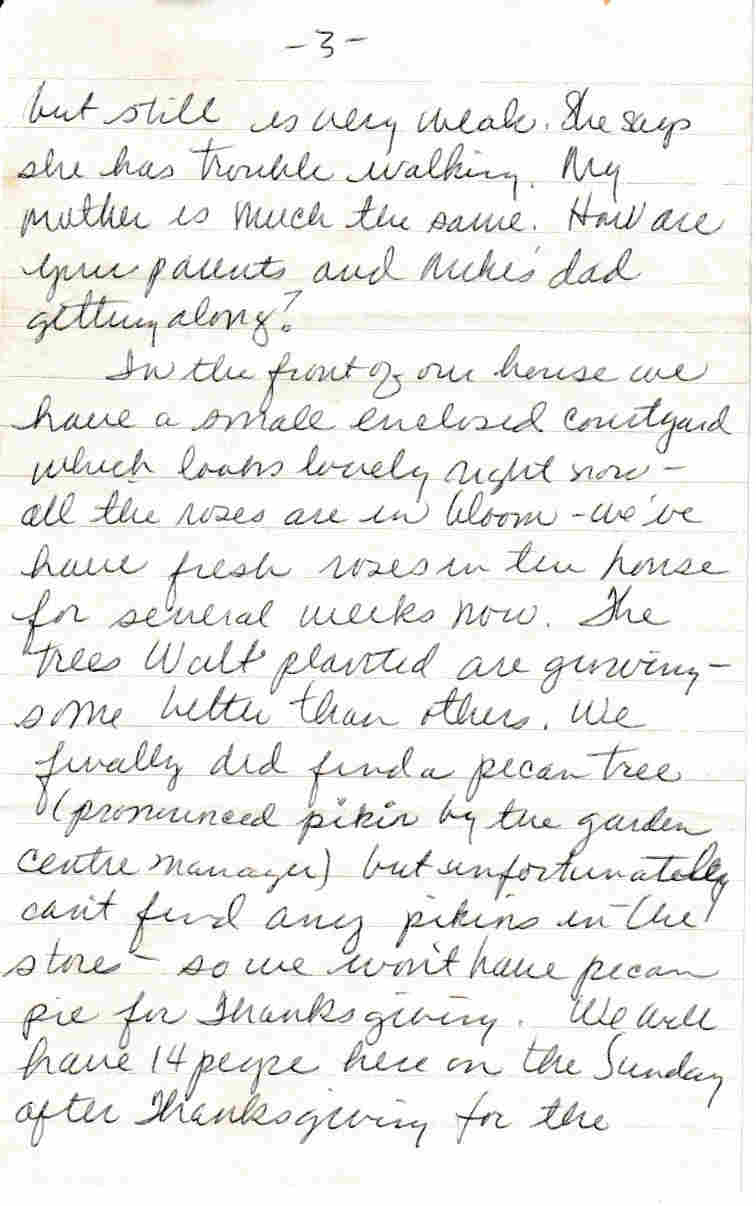 -3-
but still is very weak. She says
she has trouble walking. My
mother is much the same. How are
your parents and Mike's dad
getting along?
In the front of our house we
have a small enclosed courtyard
which looks lovely right now -
all the roses are in bloom - we've
have fresh roses in the house
for several weeks now. The
trees Walt planted are growing -
some better than others. We
finally did find a pecan tree
(pronounced pikin by the garden
centre manager) but unfortunately
can't find any pikins in the
stores - so we won't have pecan
pie for Thanksgiving. We will
have 14 people here on the Sunday
after Thanksgiving for the